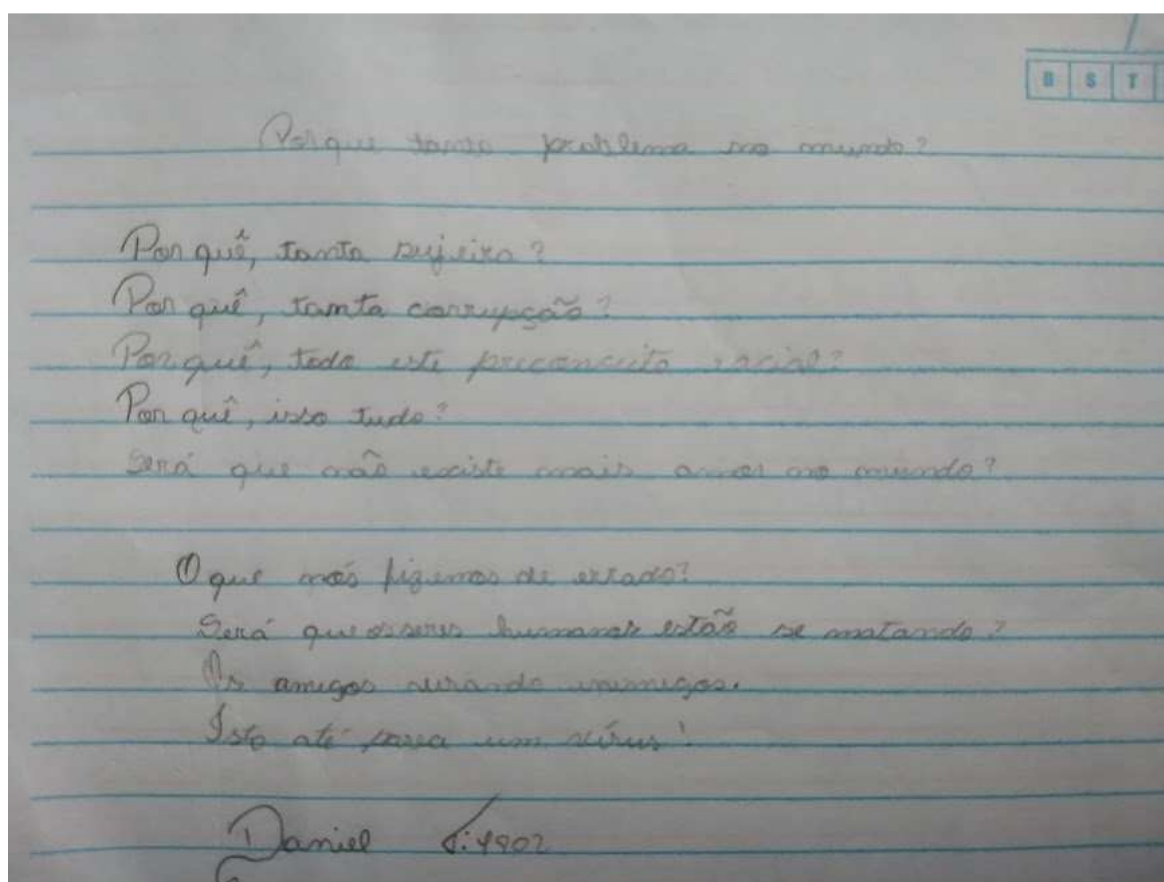 B S T
Porque tanto problema no mundo?
Por quê, tanta sujeira?
Por quê, tamta corrupção?
Por quê, todo este preconceito racial?
Por quê, isso tudo?
Será que não existe mais amor no mundo?
O que nós fizemos de errado?
Será que os seres humanos estão se matando?
Os amigos virando inimigos.
Isto até parece um vírus!
Daniel T:4902